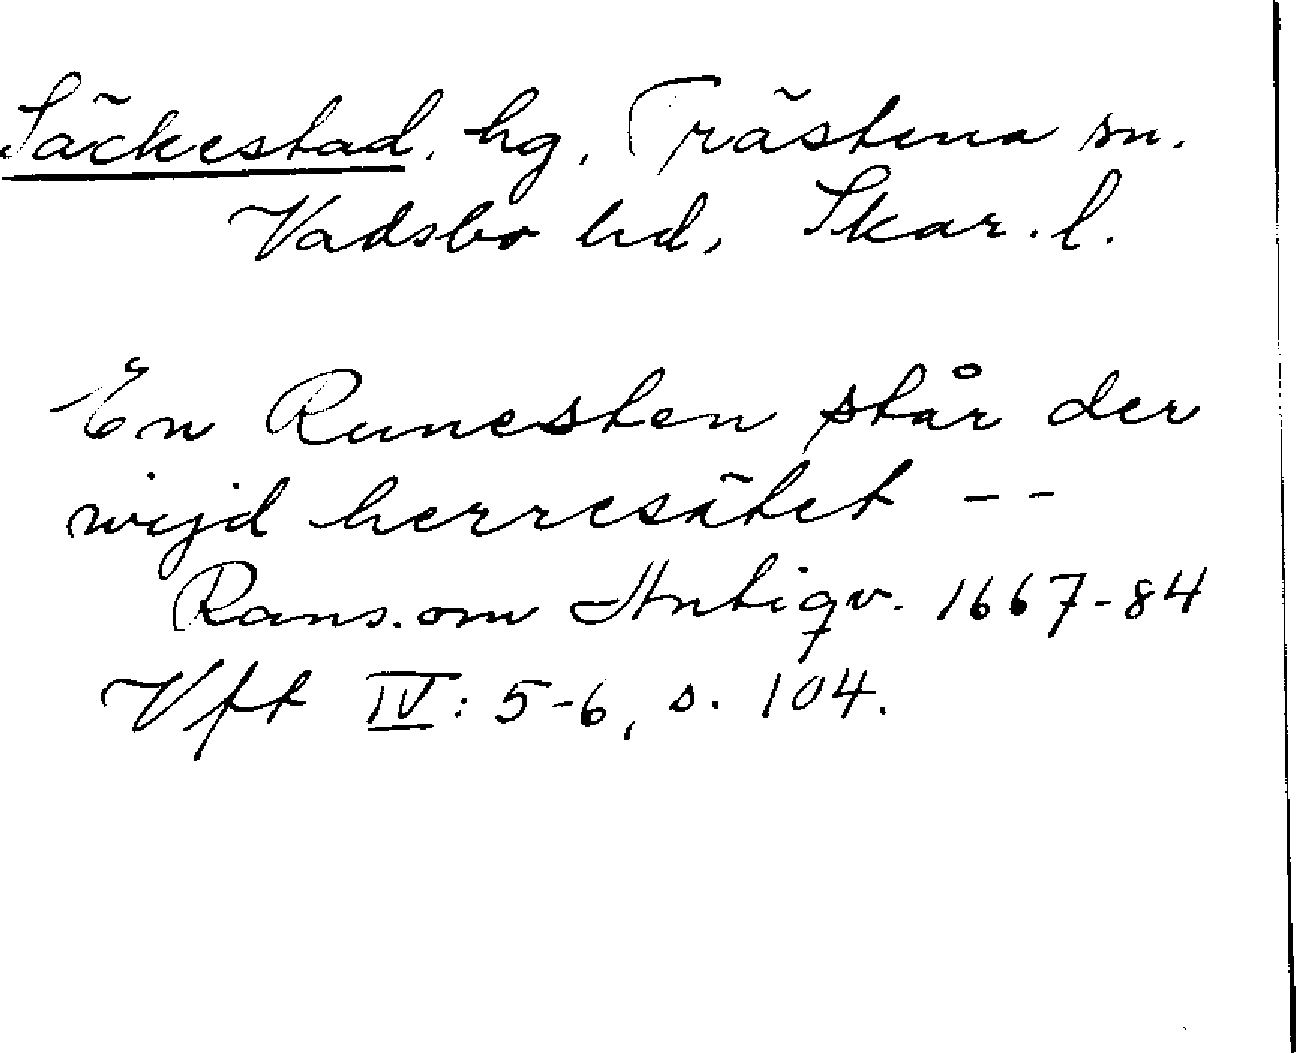 Säckestad, hg, Trästena sn.
Vadsbo hd, Skar. l.
En Runesten står der
wijd herresätet --
Rans. om Antiqv. 1667-84
Vft IV: 5-6, s. 104.